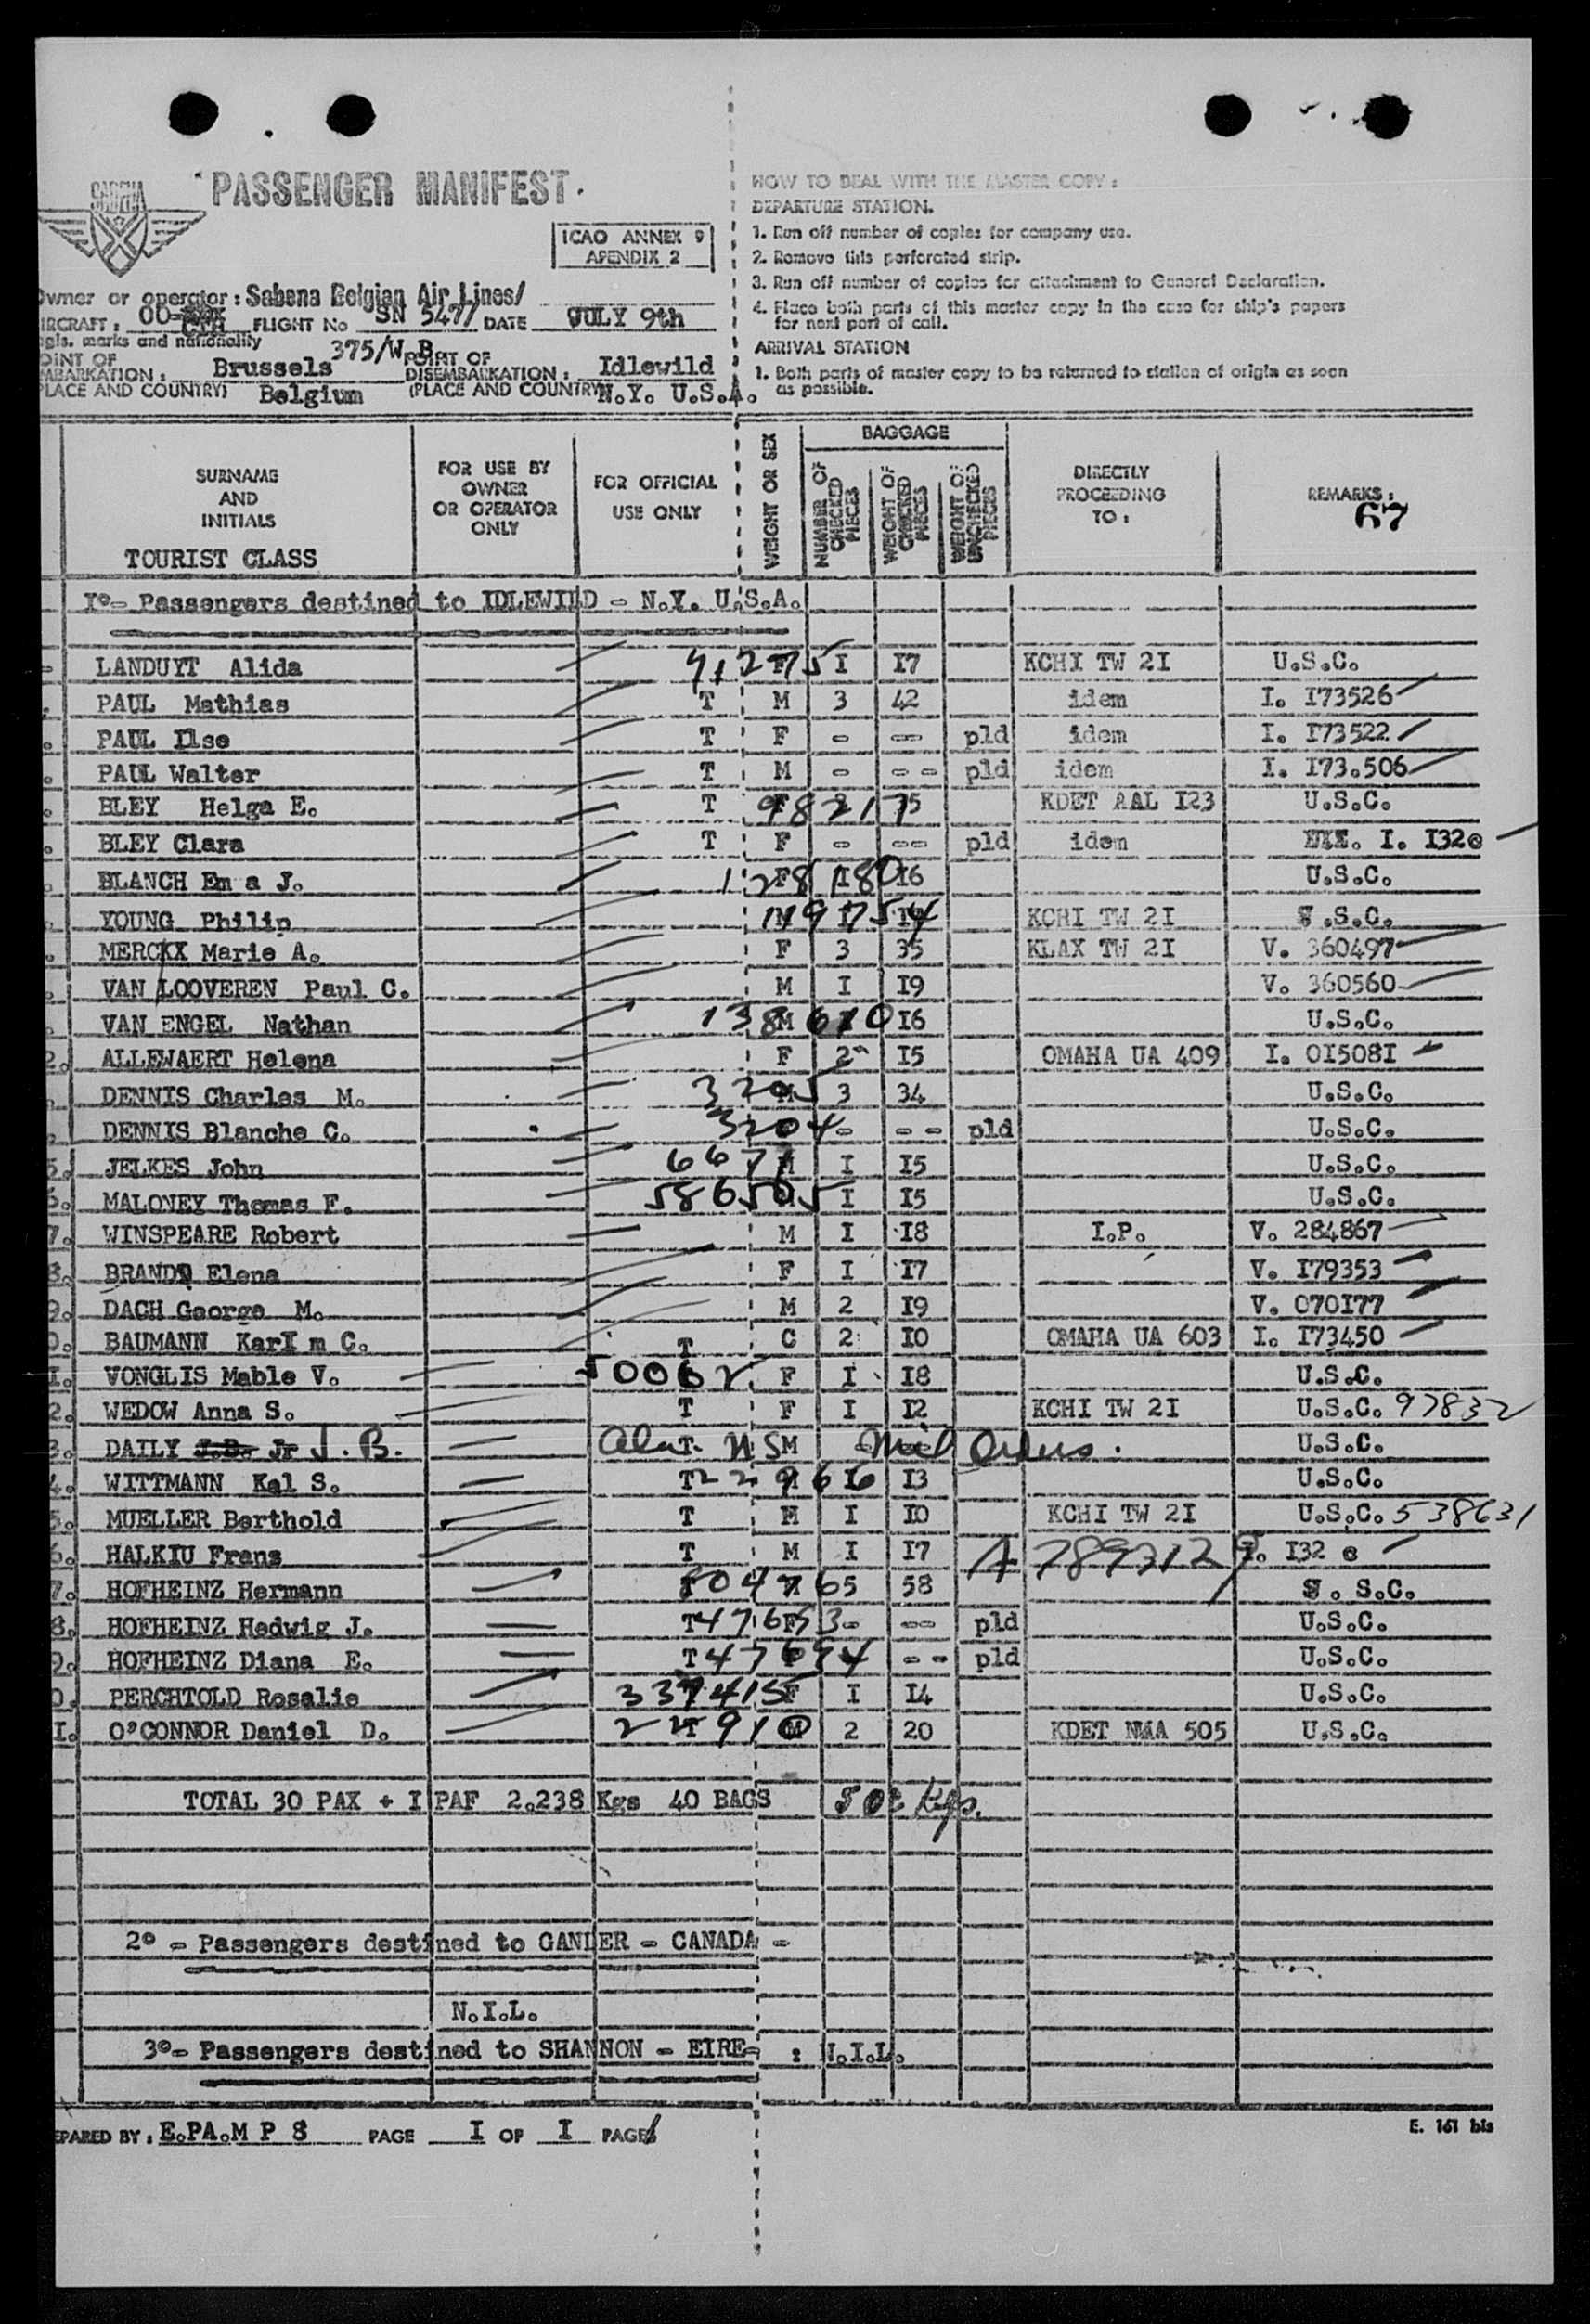 SABENA
PASSENGER MANIFEST.
ICAO ANNEX 9
APENDIX 2
HOW TO DEAL WITH THE MASTER COPY :
DEPARTURE STATION.
1. Run off number of copies for company use.
2. Remove this perforated strip.
3. Run off number of copies for attachment to General Declaration.
4. Place both parts of this master copy in the case for ship's papers
for next port of call.
ARRIVAL STATION
1. Both parts of master copy to be returned to station of origin as soon
as possible.
Owner or operator : Sabena Belgian Air Lines/
AIRCRAFT : OO- CTH FLIGHT No SN 547/ DATE JULY 9th
egis. marks and nationality 375/W.B.
POINT OF EMBARKATION : Brussels POINT OF DISEMBARKATION : Idlewild
(PLACE AND COUNTRY) Belgium (PLACE AND COUNTRY) N.Y. U.S.A.
SURNAME AND INITIALS
TOURIST CLASS
FOR USE BY OWNER OR OPERATOR ONLY
FOR OFFICIAL USE ONLY
WEIGHT OR SEX
BAGGAGE
NUMBER OF CHECKED PIECES
WEIGHT OF CHECKED PIECES
WEIGHT OF UNCHECKED PIECES
DIRECTLY PROCEEDING TO :
REMARKS :
67
I°- Passengers destined to IDLEWILD - N.Y. U.S.A.
LANDUYT Alida 41275 I I7 KCHI TW 2I U.S.C.
PAUL Mathias T M 3 42 idem I. I73526
PAUL Ilse T F - -- pld idem I. I73522
PAUL Walter T M - -- pld idem I. I73.506
BLEY Helga E. T 98217 KDET AAL I23 U.S.C.
BLEY Clara T F - -- pld idem I. I32e
BLANCH Em a J. 128180 F I I6 U.S.C.
YOUNG Philip 119754 KCHI TW 2I .S.C.
MERCKX Marie A. F 3 35 KLAX TW 2I V. 360497
VAN LOOVEREN Paul C. M I I9 V. 360560
VAN ENGEL Nathan 138610 M I6 U.S.C.
2. ALLEWAERT Helena F 2 I5 OMAHA UA 409 I. OI508I
DENNIS Charles M. 3205 3 34 U.S.C.
DENNIS Blanche C. 3204 - -- pld U.S.C.
5. JELKES John 6671 I I5 U.S.C.
6. MALONEY Thomas F. 586505 I I5 U.S.C.
7. WINSPEARE Robert M I I8 I.P. V. 284867
8. BRANDO Elena F I I7 V. I79353
9. DACH George M. M 2 I9 V. 070I77
0. BAUMANN KarI m C. T C 2 IO OMAHA UA 603 I. I73450
1. VONGLIS Mable V. 50062 F I I8 U.S.C.
2. WEDOW Anna S. T F I I2 KCHI TW 2I U.S.C. 97832
3. DAILY J.B. Jr J. B. T M Mil Orders. U.S.C.
4. WITTMANN Kal S. T 22966 I I3 U.S.C.
5. MUELLER Berthold T M I IO KCHI TW 2I U.S.C. 538631
6. HALKIU Frans T M I I7 A 7897129 I. I32 e
7. HOFHEINZ Hermann 5 58 . S.C.
8. HOFHEINZ Hedwig J. T 47653 F - -- pld U.S.C.
9. HOFHEINZ Diana E. T 47694 -- pld U.S.C.
0. PERCHTOLD Rosalie 337415 F I I4 U.S.C.
I. O'CONNOR Daniel D. T M 2 20 KDET NMA 505 U.S.C.
TOTAL 30 PAX + I PAF 2.238 Kgs 40 BAGS Kgs.
2° - Passengers destined to GANDER - CANADA -
N.I.L.
3°- Passengers destined to SHANNON - EIRE- : N.I.L.
EPARED BY : E.PA.M P S PAGE I OF I PAGES
E. 161 bis